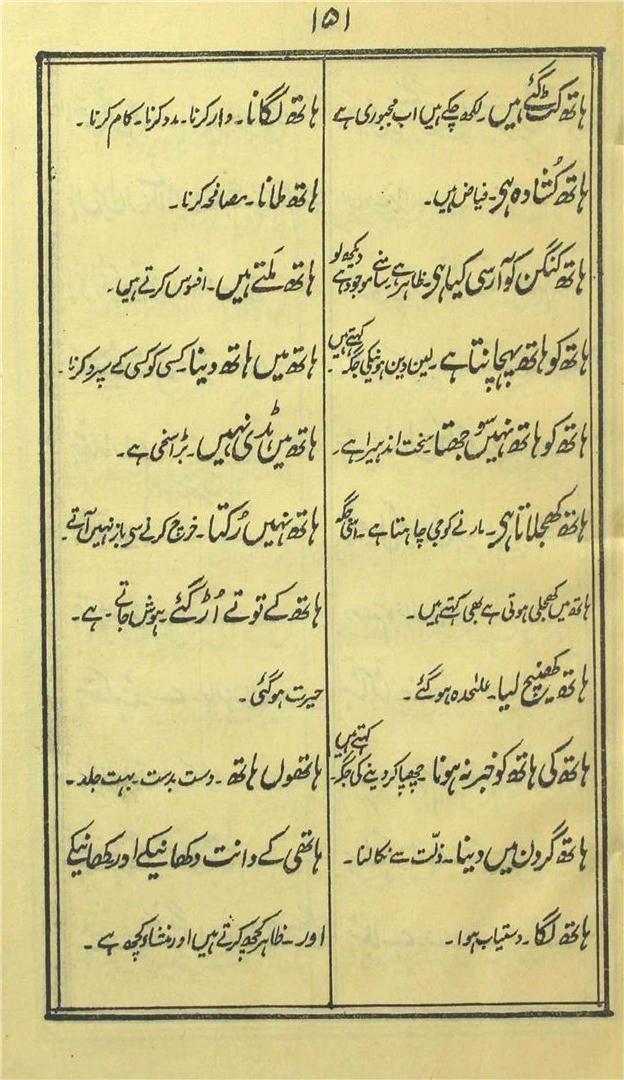 ۱۵۱
ہاتھ کٹ گئے ہیں۔ لکھ چکے ہیں اب مجبوری ہے
ہاتھ کُشادہ ہی۔ فیاض ہیں۔
ہاتھ کنگن کو آرسی کیا ہی۔ ظاہر ہے سامنے موجود ہے دیکھ لو
ہاتھ کو ہاتھ پہچانتا ہے۔ لین دین ہونیکی جگہ کہتے ہیں۔
ہاتھ کو ہاتھ نہیں سوجھتا سخت اندہیرا ہے۔
ہاتھ کھجلاتا ہی۔ مارنے کو جی چاہتا ہے۔ اسی جگہ
ہاتھ میں کھجلی ہوتی ہے بھی کہتے ہیں۔
ہاتھ کھینچ لیا۔ علٰحدہ ہو گئے۔
ہاتھ کی ہاتھ کو خبر نہ ہونا چھپا کر دینے کی جگہ کہتے ہیں۔
ہاتھ گردن میں دینا۔ ذلّت سے نکالنا۔
ہاتھ لگا۔ دستیاب ہوا۔
ہاتھ لگانا۔ وار کرنا۔ مدد کرنا۔ کام کرنا۔
ہاتھ ملانا۔ مصافحہ کرنا۔
ہاتھ مَلتے ہیں۔ افسوس کرتے ہیں۔
ہاتھ میں ہاتھ دینا۔ کسی کو کسی کے سپرد کرنا۔
ہاتھ میں ہڈی نہیں۔ بڑا سخی ہے۔
ہاتھ نہیں رُکتا۔ خرچ کرنے سی باز نہیں آتے۔
ہاتھ کے توتے اُڑ گئے۔ ہوش جاتے۔ ہے۔
حیرت ہو گئی۔
ہاتھوں ہاتھ۔ دست بدست۔ بہت جلد۔
ہاتھی کے دانت دکھانیکے اور کھانیکے
اور۔ ظاہر کچھ کرتے ہیں اور منشاء کچھ ہے۔